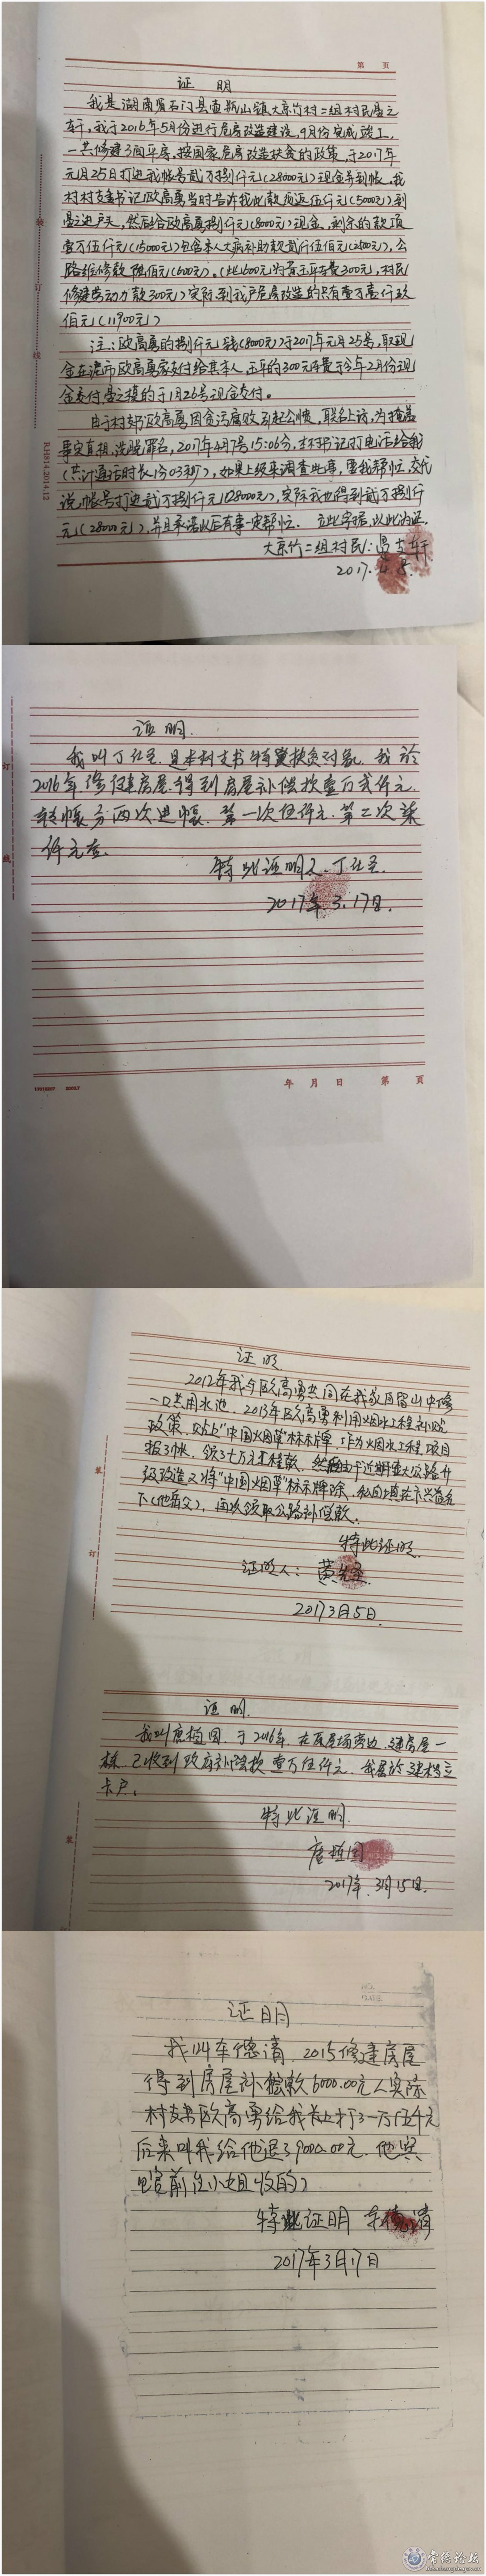 第 页
证 明
我是湖南省石门县壶瓶山镇大京竹村二组村民易之
轩,我于2016年5月份进行危房改造建设,9月份完成竣工,
一共修建3间平房,按国家危房改造扶贫的政策,于2017年
元月25日打进我帐号贰万捌仟元(28000元)现金并到帐。我
村村支书记欧高勇当时告诉我此款须返伍仟元(5000元)到
易之进户头,然后给欧高勇捌仟元(8000元)现金,剩余的款项
壹万伍仟元(15000元)包含本人大病补助款贰仟伍佰元(2500元),公
路维修款陆佰元(600元),(此600元为黄玉平车费300元,村民
修建劳动力款300元)实际到我户危房改造的只有壹万壹仟玖
佰元(11900元)
注:欧高勇的捌仟元钱(8000元)于2017年元月25号,取现
金在泥市欧高勇家支付给其本人,玉平的300元车费于今年2月份现
金交付,易之禄的于1月26号现金交付。
由于村支部欧高勇因贪污腐败引起公愤,联名上访,为掩盖
事实真相,洗脱罪名,2017年4月7号15:06分,村书记打电话给我
(共计通话时长1分03秒),如果上级来调查此事,要我帮忙,交代
说,帐号打进贰万捌仟元(28000元),实际我也得到贰万捌仟
元(28000元),并且承诺以后有事一定帮忙. 立此字据,以此为证.
大京竹二组村民:易之轩
2017.4.8.
装
订
线
RJH814-2014.12
证 明
我叫丁仕圣,是本村支书特异扶贫对象,我於
2016年修建房屋,得到房屋补偿款壹万贰仟元.
转帐分两次进帐.第一次伍仟元.第二次柒
仟元整.
特此证明人.丁仕圣.
2017年.3.17日.
订
线
年 月 日 第 页
证明
2012年我与欧高勇共同在我家后留山中修
一口共用水池,2013年欧高勇利用烟水工程补贴
政策,贴上"中国烟草"标示牌,作为烟水工程项目
报了帐,领了七万元工程款,然后由于近期重大公路升
级改造又将"中国烟草"标示牌除,私自填在卞兴益名
下(他岳父),再次领取公路补偿款。
特此证明.
证明人:黄先圣
2017 3月5日.
装
订
证 明.
我叫唐植国,于2016年,在瓦屋场旁边,建房屋一
栋,已收到政府补偿款壹万伍仟元.我属於建档立
卡户。
特此证明.
唐植国
2017年.3月15日.
装
证明
我叫车德清,2015修建房屋
得到房屋补偿款6000.00元(实际
村支书欧高勇给我卡上打了一万伍千元
后来叫我给他退了9000.00元.他安
排前任小组收的)
特此证明 车德清
2017年3月17日
常德论坛